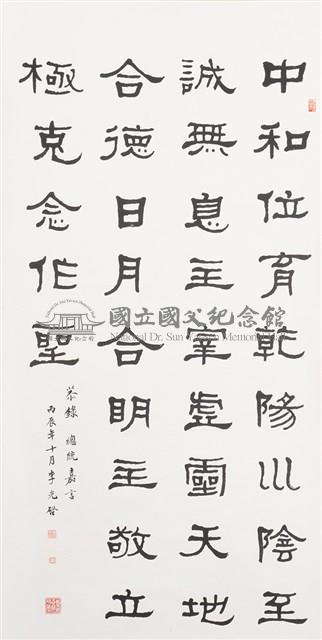 中和位育乾陽巛陰至
誠無息主宰虛靈天地
合德日月合明主敬立
極克念作聖
恭錄 總統嘉言
丙辰年十月李光啓
國立國父紀念館
National Dr. Sun Yat-sen Memorial Hall